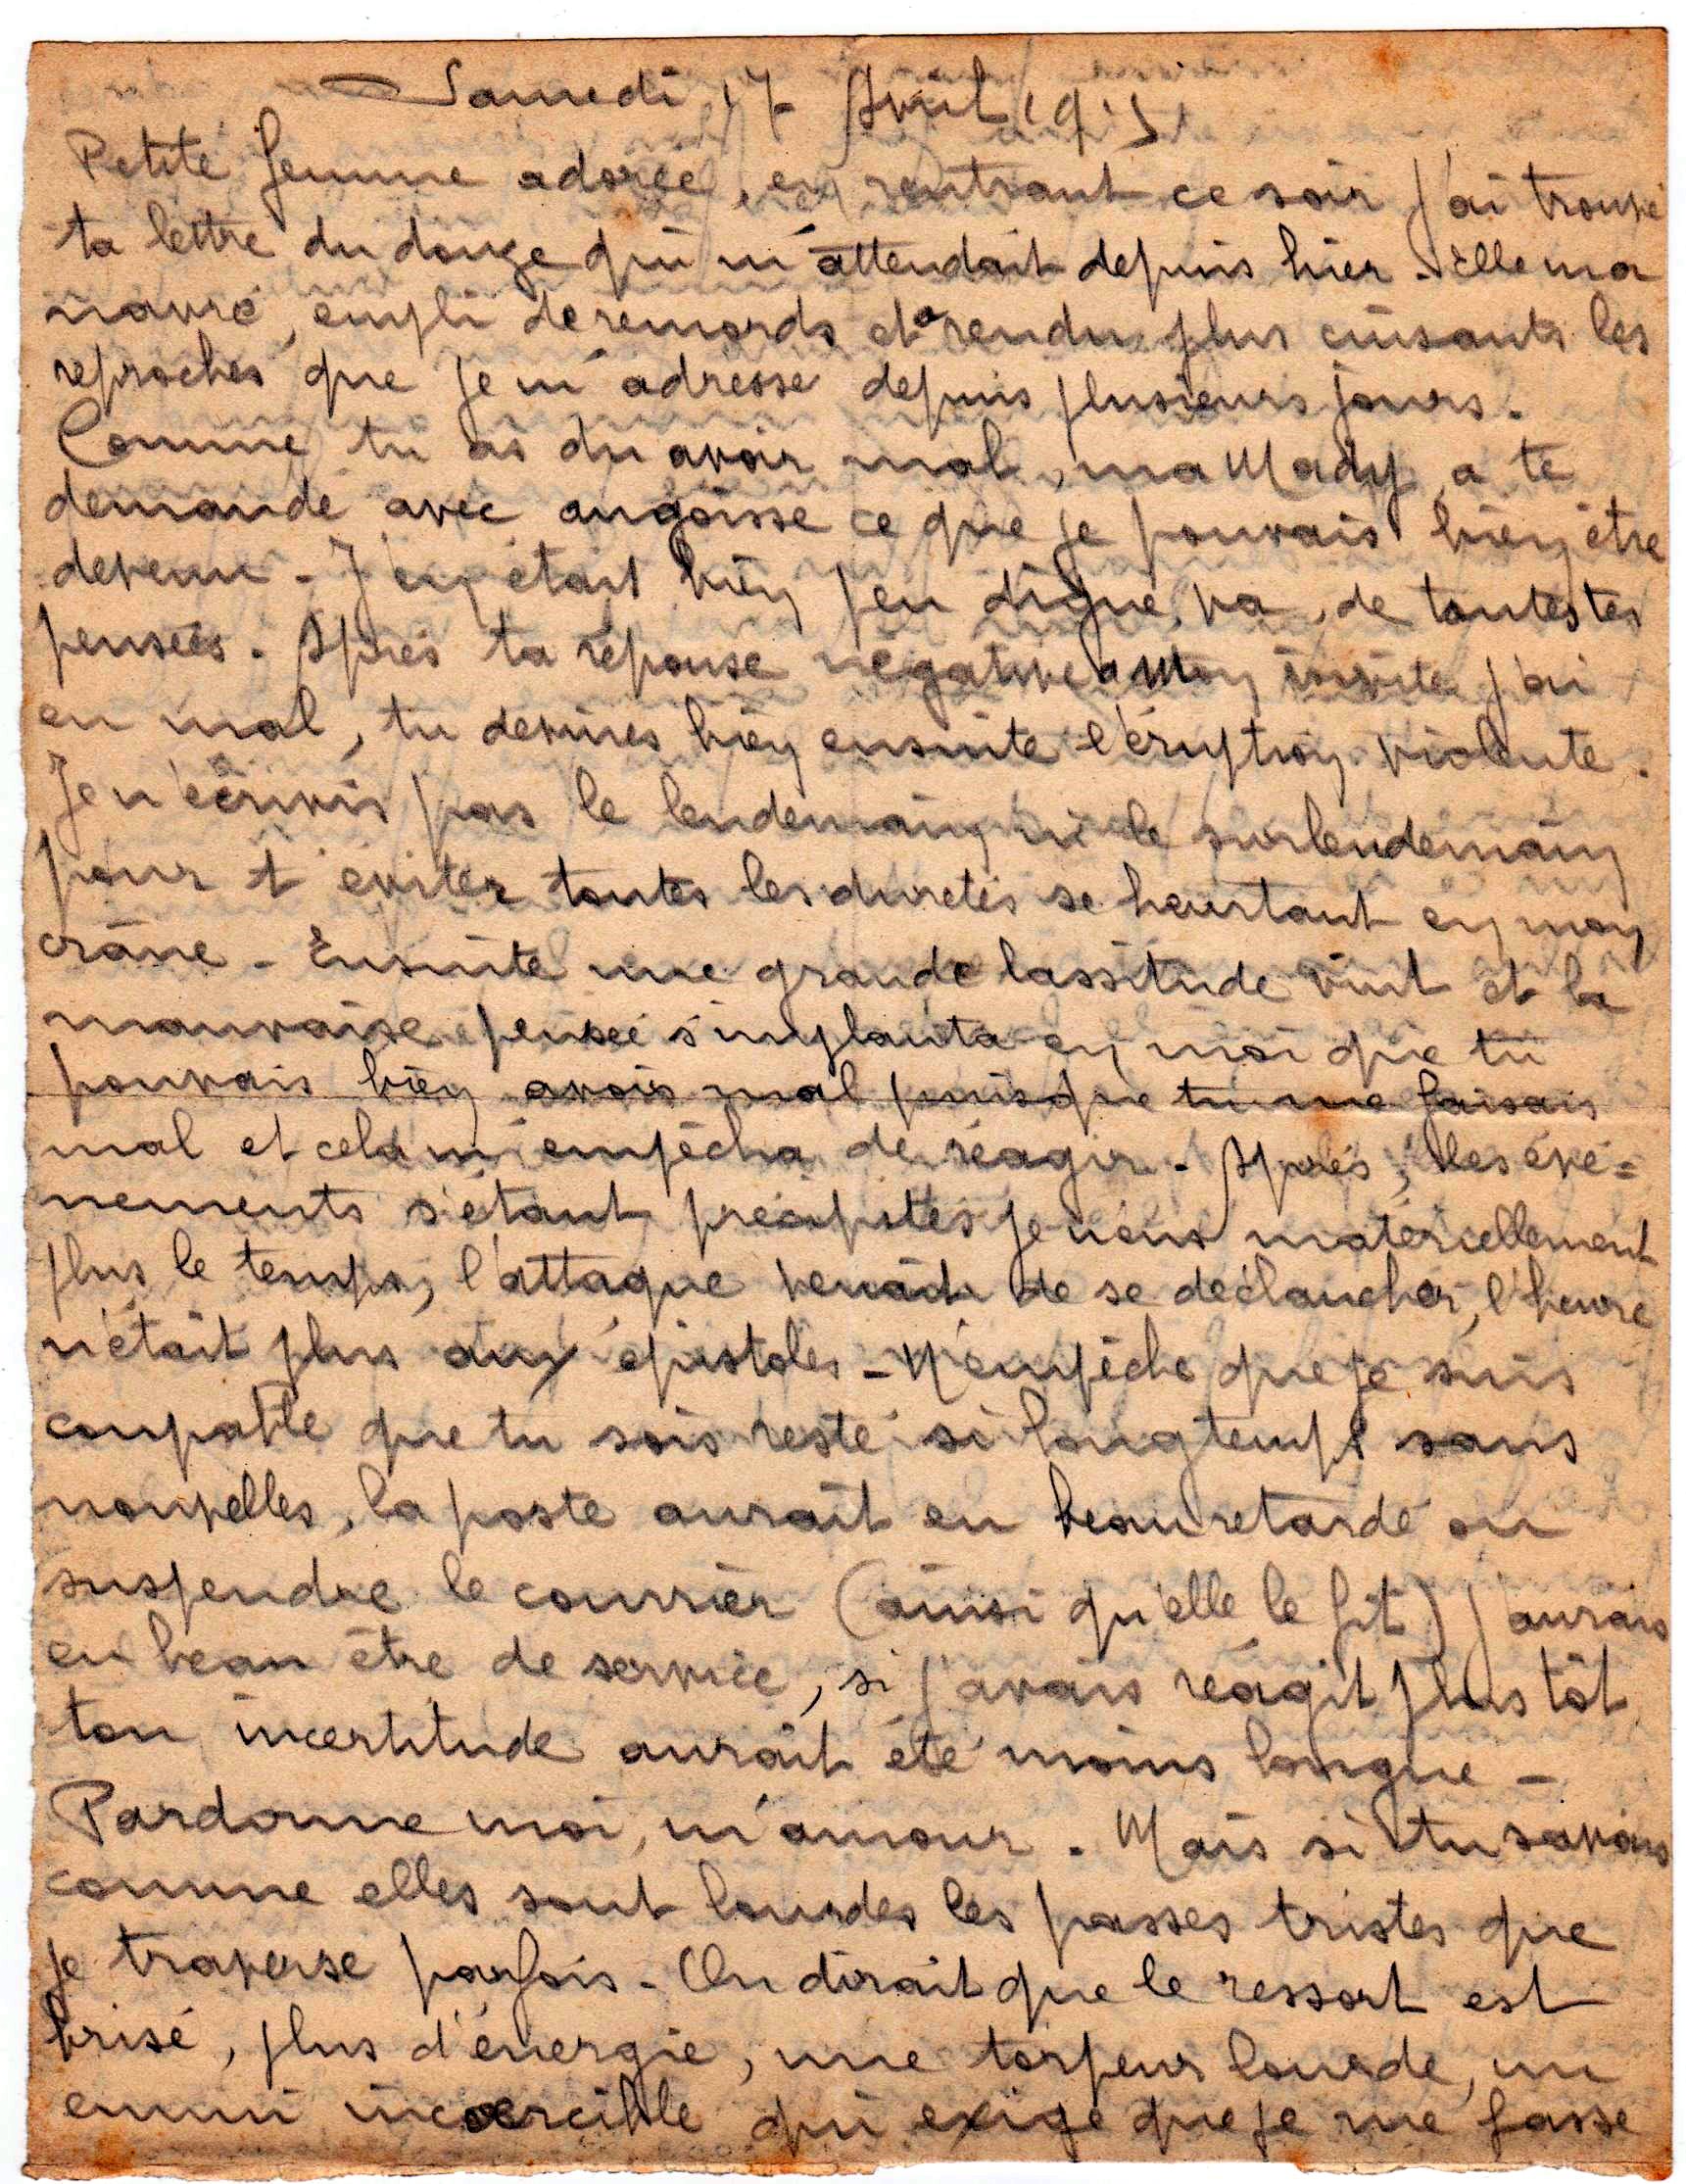 Samedi 17 Avril 1915
Petite femme adorée, en rentrant ce soir j'ai trouvé
ta lettre du douze qui m'attendait depuis hier. Elle m'a
navré, empli de remords et a rendu plus cuisants les
reproches que je m'adresse depuis plusieurs jours.
Comme tu as du avoir mal, ma Mady, a te
demande avec angoisse ce que je pouvais bien être
devenu - J'en étais bien peu digne, va, de toutes tes
pensées. Après ta réponse négative a mon invite j'ai
eu mal, tu devines bien ensuite l'éruption violente.
Je n'écrivis pas le lendemain ni le surlendemain
pour t'éviter toutes les duretés se heurtant en mon
crâne - Ensuite une grande lassitude vint et la
mauvaise pensée s'implanta en moi que tu
pouvais bien avoir mal puisque tu me faisais
mal et cela m'empêcha de réagir. Après, les évé=
nements s'étant précipités je n'eus matériellement
plus le temps, l'attaque venait de se déclancher, l'heure
n'était plus aux épistoles - N'empêche que je suis
coupable que tu sois resté si longtemps sans
nouvelles, la poste aurait eu beau retardé ou
suspendre le courrier (ainsi qu'elle le fit) j'aurais
eu beau être de service, si j'avais réagit plus tôt
ton incertitude aurait été moins longue -
Pardonne moi, m'amour. Mais si tu savais
comme elles sont lourdes les passes tristes que
je traverse parfois - On dirait que le ressort est
brisé, plus d'énergie, une torpeur lourde, un
ennui incoercible qui exige que je me fasse